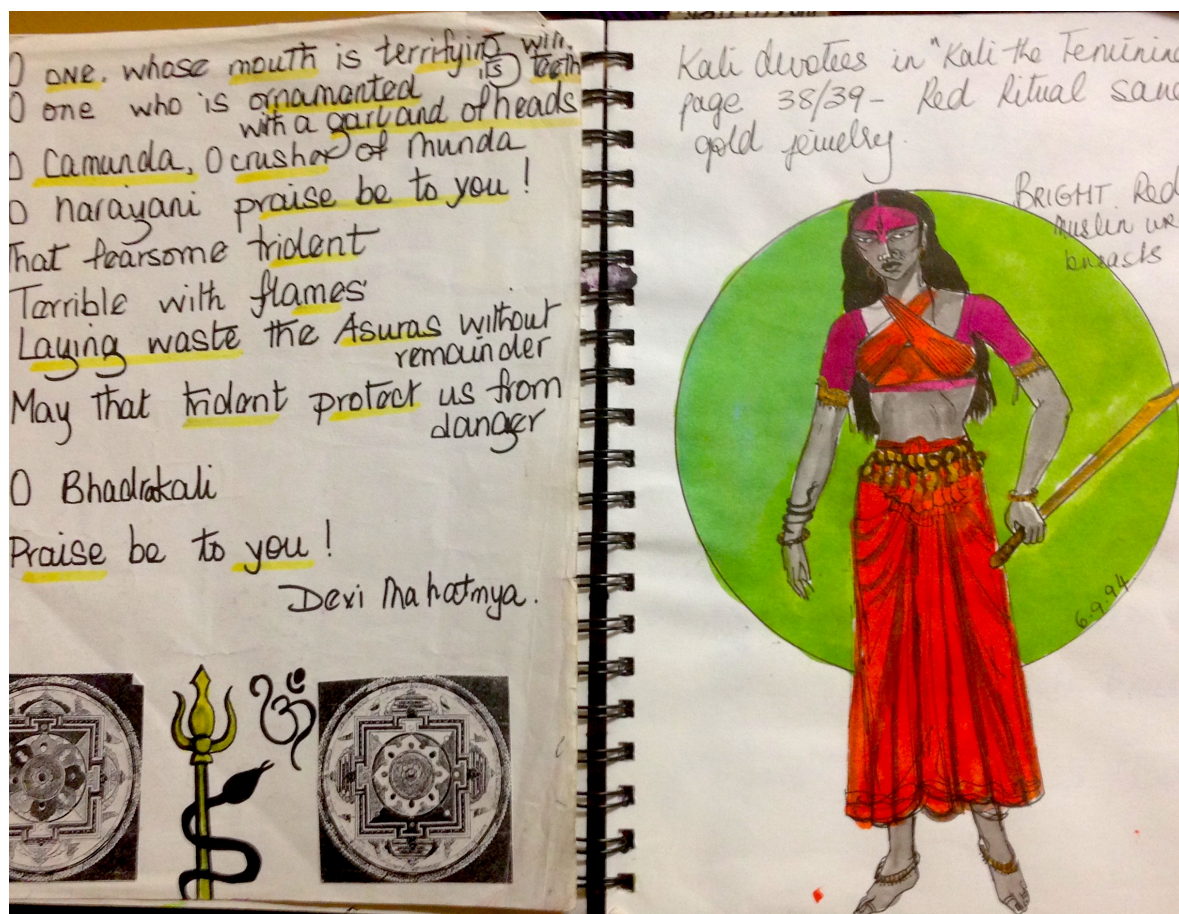 O one, whose mouth is terrifying with
its teeth
O one who is ornamanted
with a garland of heads
O Camunda, O crusher of Munda
O narayani praise be to you !
That fearsome trident
Terrible with flames
Laying waste the Asuras without
remainder
May that trident protect us from
danger
O Bhadrakali
Praise be to you !
Devi Mahatmya.
ॐ
Kali devotees in "Kali the Feminine
page 38/39 - Red Ritual
gold jewelry.
BRIGHT Red
Muslin
breasts
6.9.94